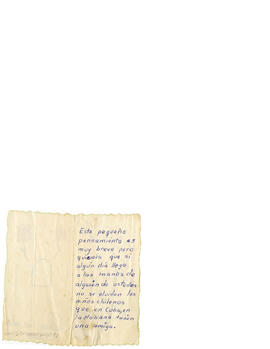 Este pequeño
pensamiento es
muy breve pero
quisiera que si
algún día llega
a las manos de
alguien de ustedes
no se olviden los
niños chilenos
que en Cuba, en
la Habana tienen
una amiga.